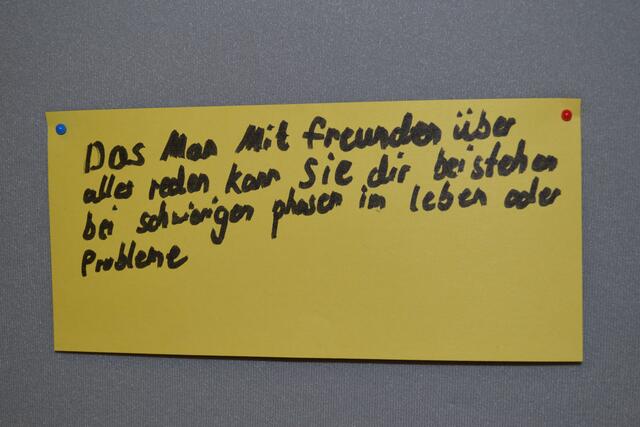 Das Man Mit freunden über
alles reden kann Sie dir beistehen
bei schwierigen phasen im leben oder
Probleme